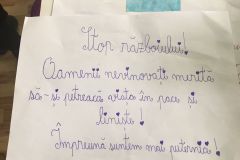 Stop războiului!
Oamenii nevinovați merită
să-și petreacă viața în pace și
liniște!
Împreună suntem mai puternici!